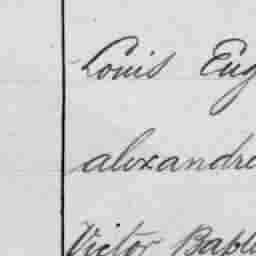 Louis Eug
alexandre
Victor Bapt